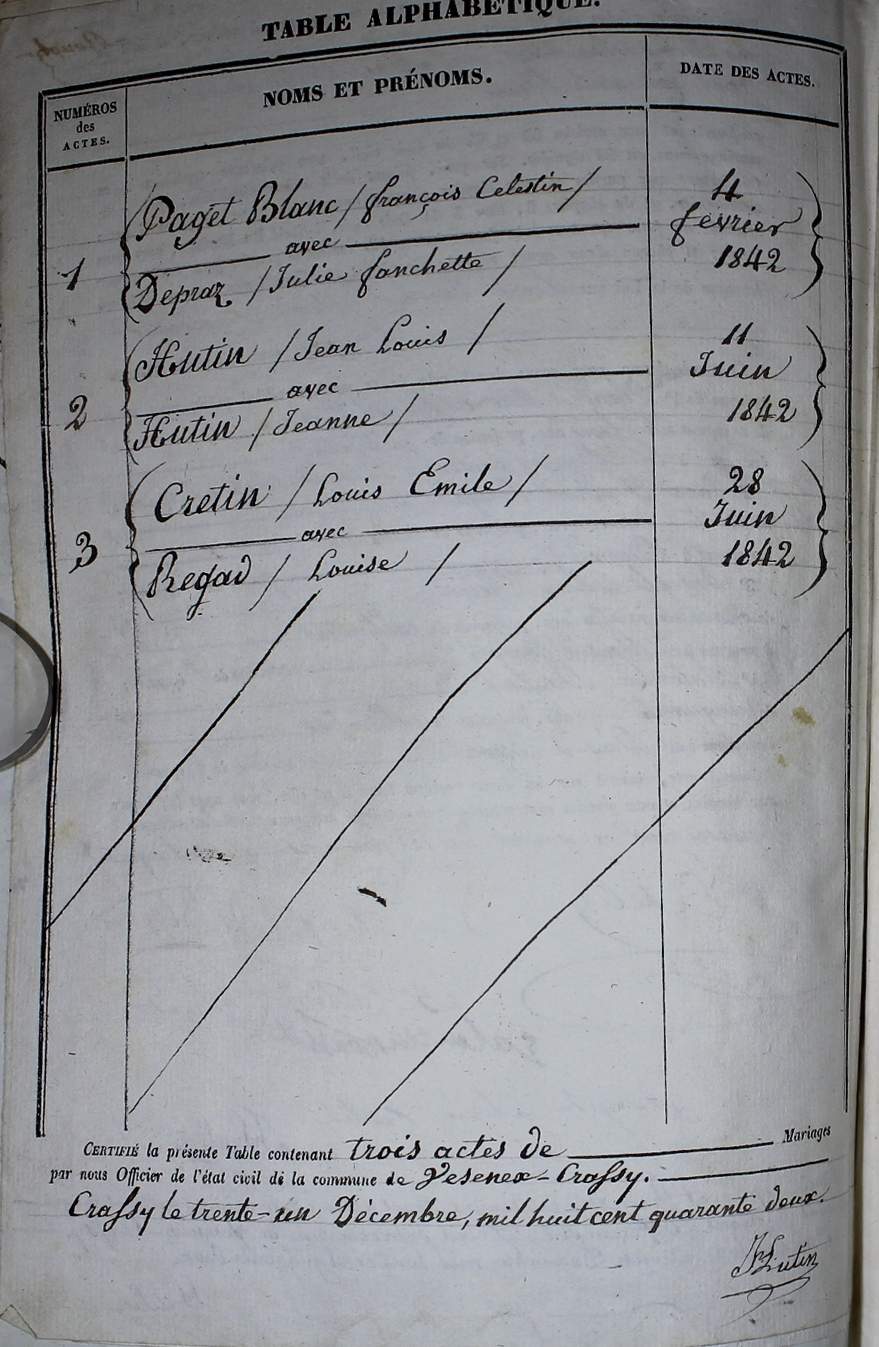 TABLE ALPHABÉTIQUE.
NUMÉROS des ACTES.
NOMS ET PRÉNOMS.
DATE DES ACTES.
Paget Blanc / françois Celestin /
4
avec
février
1
Depraz / Julie fanchette /
1842
Hutin / Jean Louis /
11
avec
Juin
2
Hutin / Jeanne /
1842
Cretin / Louis Emile /
28
avec
Juin
3
Regad / Louise /
1842
CERTIFIÉ la présente Table contenant trois actes de Mariages
par nous Officier de l'état civil de la commune de Vesenex-Crassy.
Crassy le trente-un Décembre, mil huit cent quarante deux.
Hutin